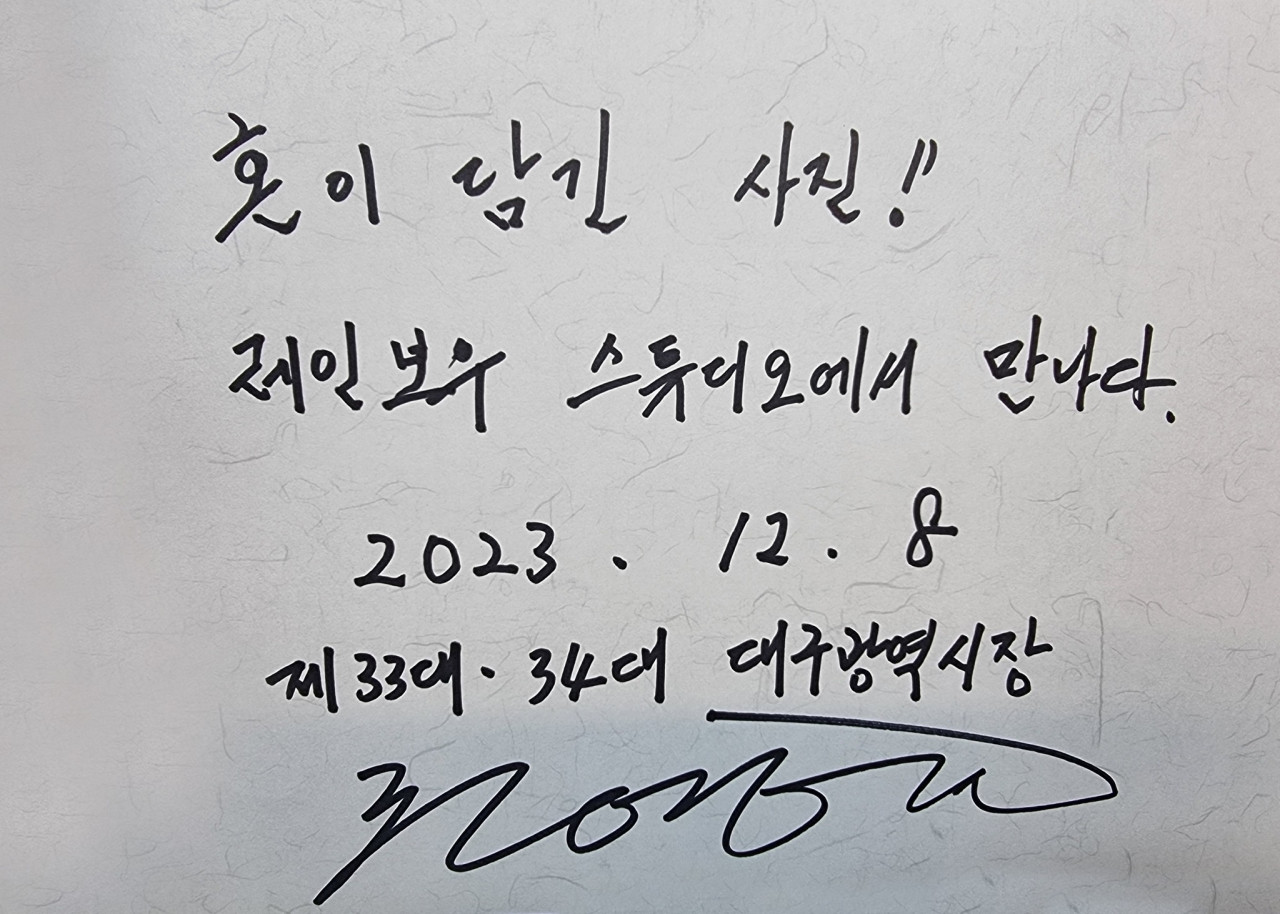 혼이 담긴 사진!!
제일보우 스튜디오에서 만나다.
2023. 12. 8
제33대·34대 대구광역시장